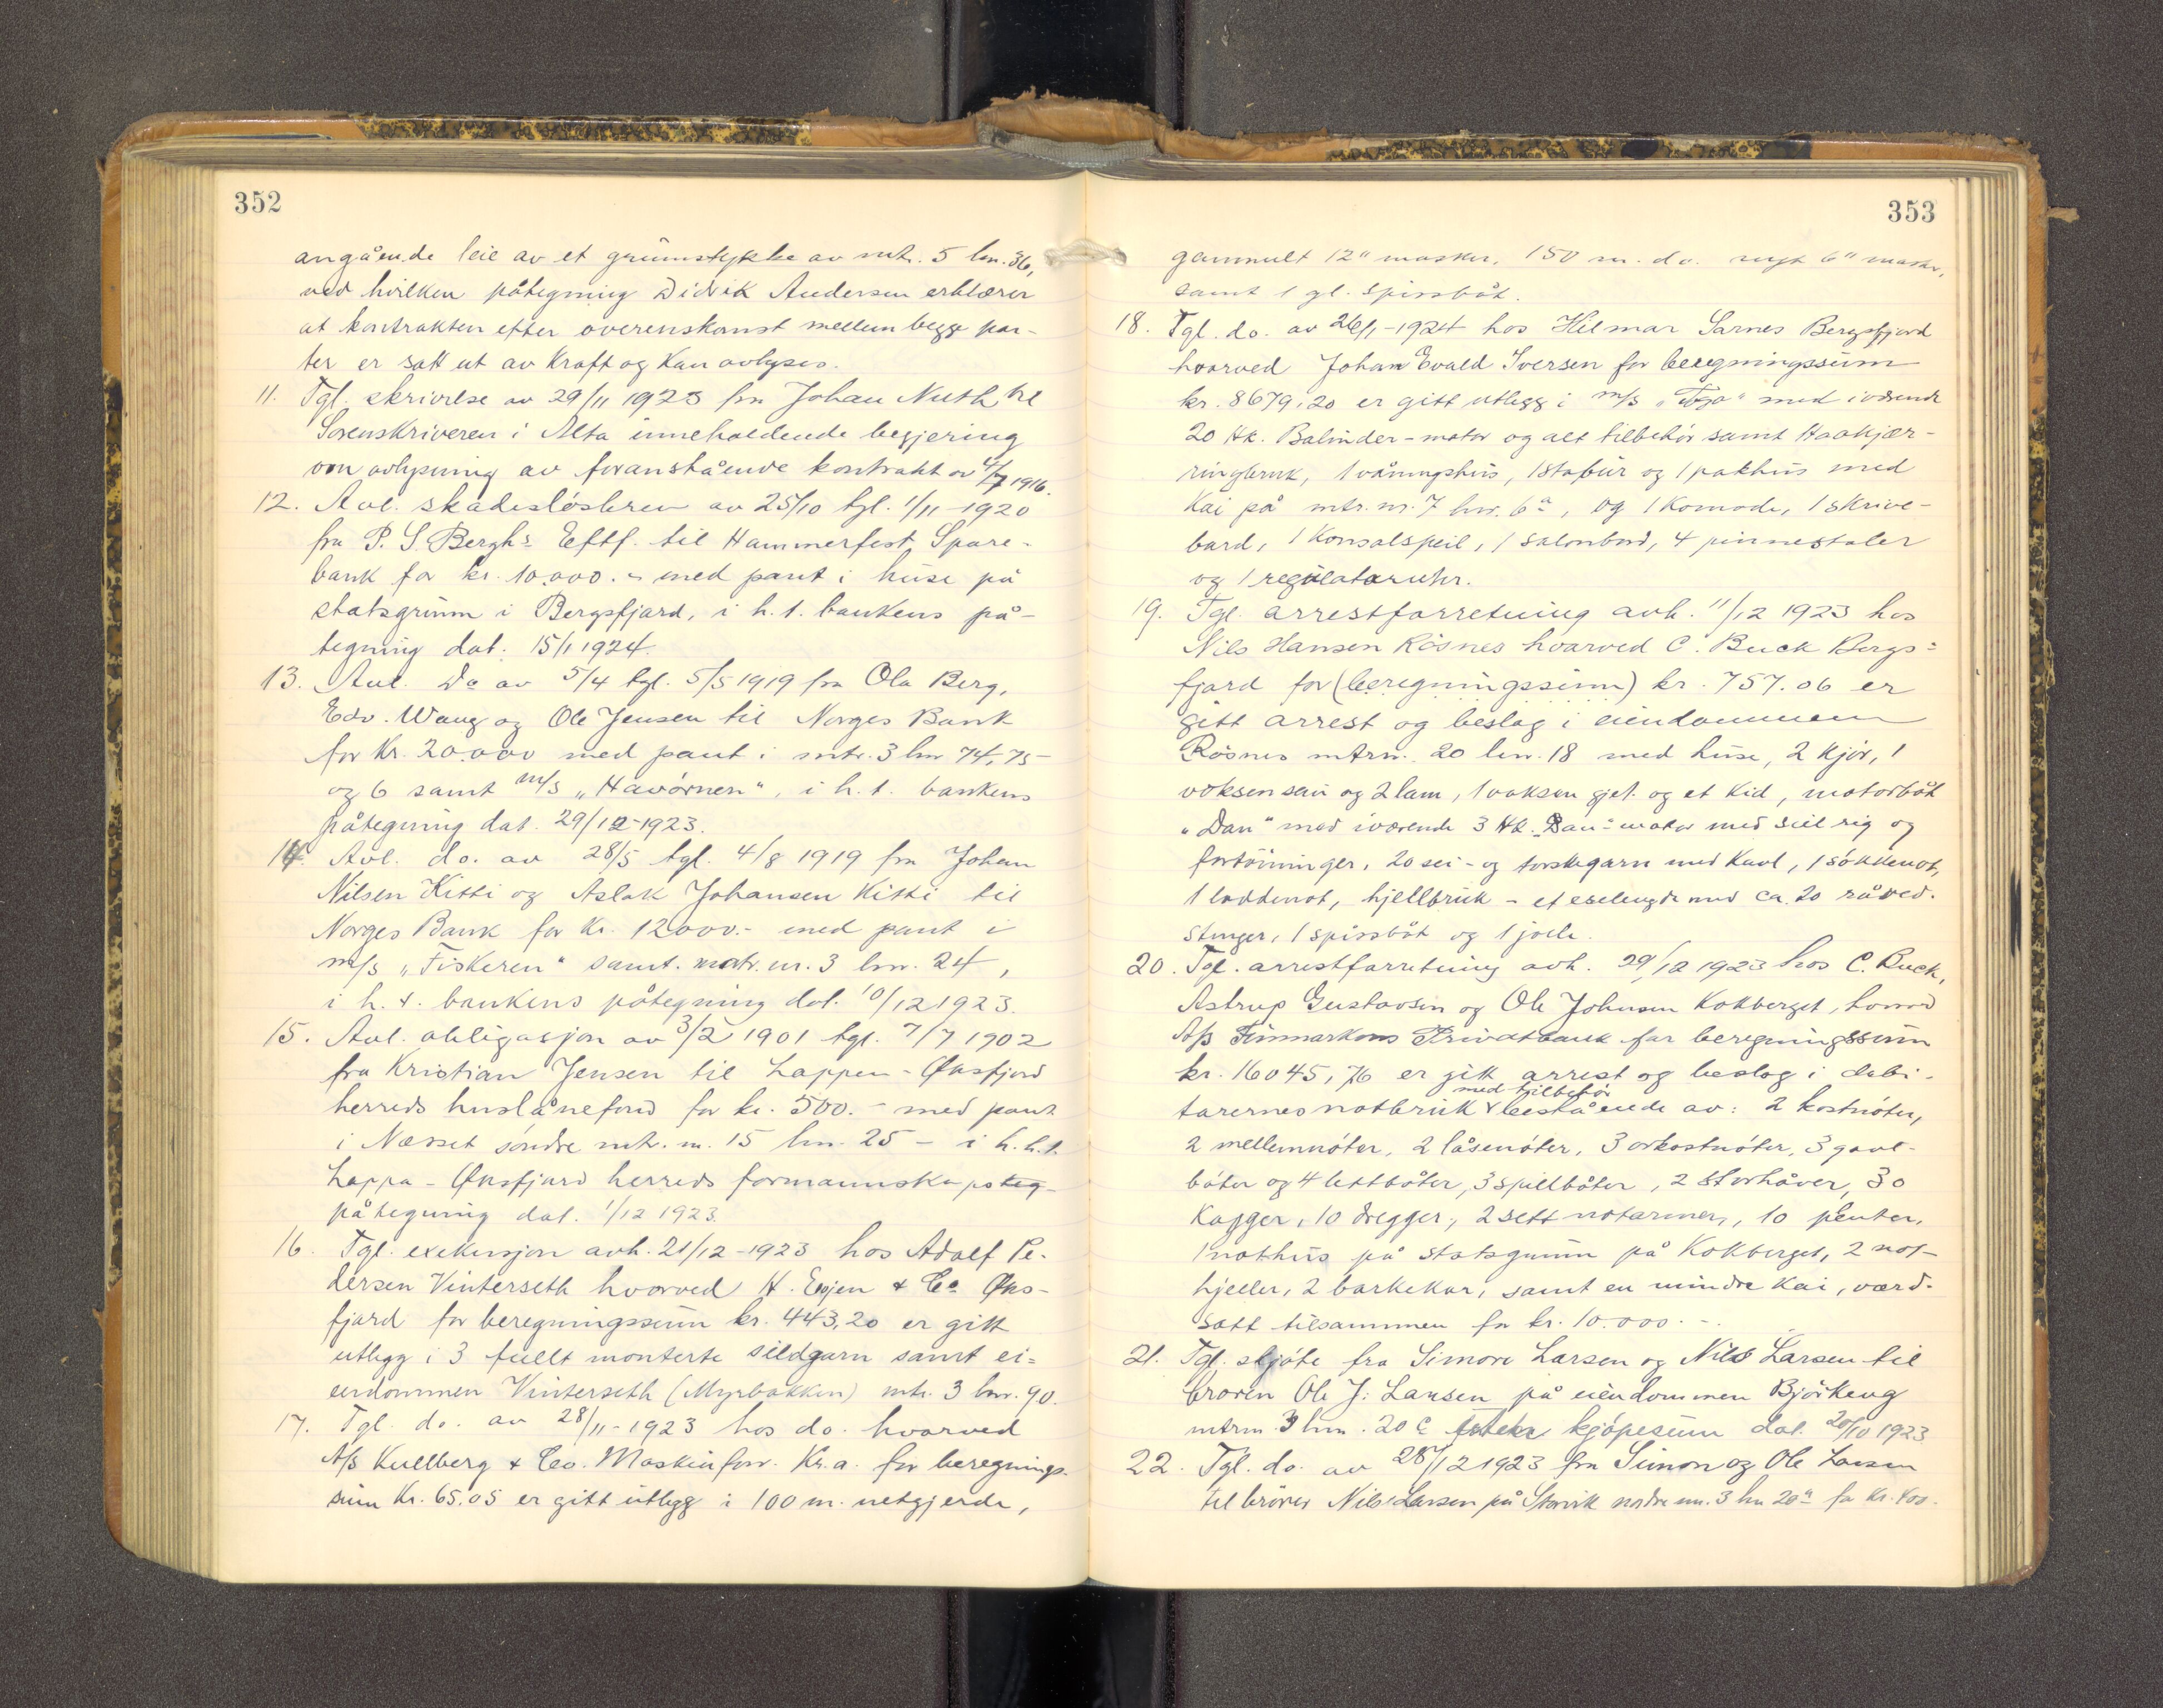 352
angående leie av et grunnstykke av mtr. 5 lnr. 36,
ved hvilken påtegning Didrik Andersen erklærer
at kontrakten efter overenskomst mellem begge par-
ter er satt ut av kraft og kan avlyses.
11. Tgl. skrivelse av 29/11 1923 fra Johan Nuth til
Sorenskriveren i Alta inneholdende begjering
om avlysning av foranstående kontrakt av 4/7 1916.
12. Avl. skadesløsbrev av 25/10 tgl. 1/11 - 1920
fra P. S. Berghs Eftf. til Hammerfest Spare-
bank for kr. 10.000.- med pant i huse på
statsgrunn i Bergsfjord, i h. t. bankens på-
tegning dat. 15/1 1924.
13. Avl. Do av 5/4 tgl. 5/5 1919 fra Ola Berg,
Edv. Wang og Ole Jensen til Norges Bank
for kr. 20.000 med pant i mtr. 3 lnr 74, 75 -
og 6 samt m/s „Havørnen", i h. t. bankens
påtegning dat. 29/12-1923.
14. Avl. do. av 28/5 tgl. 4/8 1919 fra Johan
Nilsen Kitti og Aslak Johansen Kitti til
Norges Bank for kr. 12000.- med pant i
m/s „Fiskeren" samt matr. nr. 3 lnr. 24,
i h. t. bankens påtegning dat. 10/12 1923.
15. Avl. obligasjon av 3/2 1901 tgl. 7/7 1902
fra Kristian Jensen til Loppen - Øksfjord
herreds huslånefond for kr. 500.- med pant
i Næsset søndre mtr. nr. 15 lnr. 25 - i h. h. t.
Loppa - Øksfjord herreds formannskapsteg-
påtegning dat. 1/12 1923.
16. Tgl. exekusjon avh. 21/12 - 1923 hos Adolf Pe-
dersen Vinterseth hvorved H. Esjen & Co Øks-
fjord for beregningssum kr. 443,20 er gitt
utlegg i 3 fullt monterte sildgarn samt ei-
endommen Vinterseth (Myrbakken) mtr. 3 lnr. 90.
17. Tgl. do. av 28/11 - 1923 hos do. hvorved
A/s Kullberg & Co. Maskinforr. Kr.a. for beregnings-
sum kr. 65.05 er gitt utlegg i 100 m. notgjerde,
353
gammelt 12" masker, 150 m. do. nytt 6" masker,
samt 1 gl. spissbåt.
18. Tgl. do. av 26/1 - 1924 hos Hilmar Sarnes Bergsfjord
hvorved Johan Evald Iversen for beregningssum
kr. 8679,20 er gitt utlegg i m/s „Toga" med iværende
20 Hk. Bolinder - motor og alt tilbehør samt Haakjær-
ringbruk, 1 våningshus, 1 stabur og 1 pakhus med
kai på mtr. nr. 7 lnr. 6a, og 1 komode, 1 skrive-
bord, 1 Konsolspeil, 1 salonbord, 4 pinnestoler
og 1 regulatoruhr.
19. Tgl. arrestforretning avh. 11/12 1923 hos
Nils Hansen Røsnes hvorved C. Buck Bergs-
fjord for (beregningssum) kr. 757.06 er
gitt arrest og beslag i eiendommen
Røsnes mtrn. 20 lnr. 18 med huse, 2 kjør, 1
voksen sau og 2 lam, 1 voksen gjet og et kid, motorbåt
„Dan" med iværende 3 Hk. Dan-motor med seil rig og
fortøininger, 20 sei- og torskegarn med kavl, 1 søkkenot,
1 loddenot, hjellbruk - et eselengde med ca. 20 råved-
stenger, 1 spissbåt og 1 jolle.
20. Tgl. arrestforretning avh. 29/12 1923 hos C. Buck,
Astrup Gustavsen og Ole Johnsen Kokberget, hvorved
A/s Finmarkens Privatbank for beregningssum
kr. 16045,76 er gitt arrest og beslag i debi-
med tilbehør
torernes notbruk bestående av: 2 kastnøter,
2 mellemnøter, 2 låsenøter, 3 orkastnøter, 3 gavl-
båter og 4 lettbåter, 3 spillbåter, 2 storhåver, 30
kagger, 10 dregger, 2 sett notarmer, 10 penter,
1 nothus på statsgrunn på Kokberget, 2 not-
hjeller, 2 barkekar, samt en mindre kai, verd-
satt tilsammen for kr. 10.000.-.
21. Tgl. skjøte fra Simon Larsen og Nils Larsen til
broren Ole J. Larsen på eiendommen Björkeng
mtrn. 3 lnr. 20 c kjøpesum dat. 20/10 1923
22. Tgl. do. av 28/12 1923 fra Simon og Ole Larsen
til brøres Nils Larsen på Storvik nordre nr. 3 lnr 20a for kr. 400.